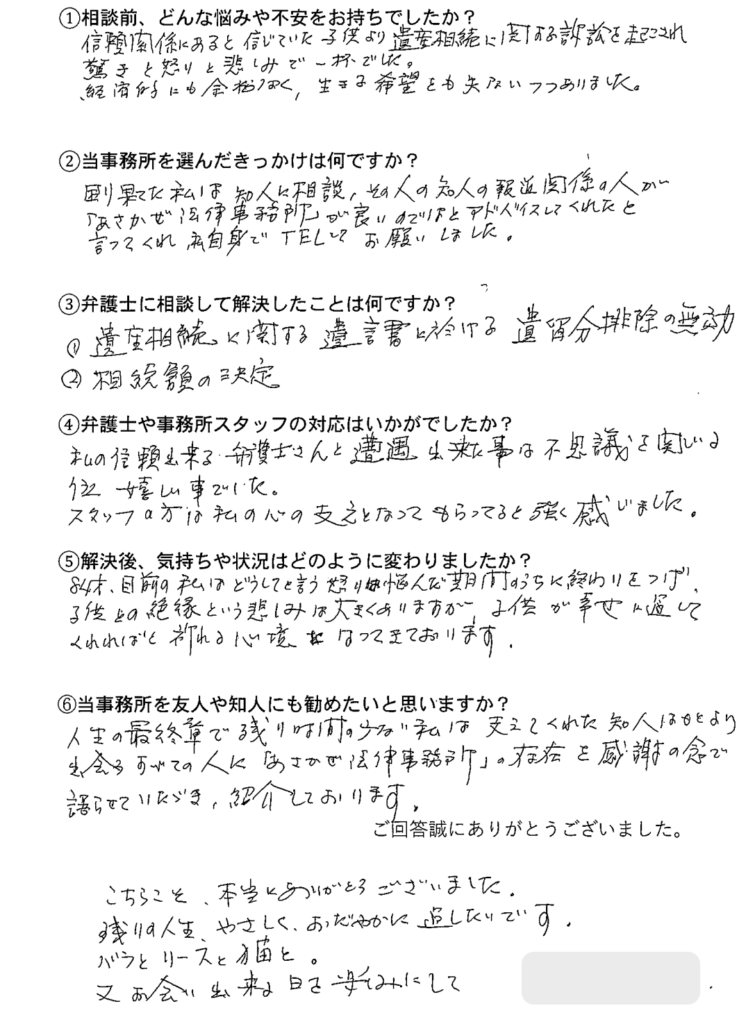 ①相談前、どんな悩みや不安をお持ちでしたか？
信頼関係にあると信じていた子供より遺産相続に関する訴訟を起こされ
驚きと怒りと悲しみで一杯でした。
経済的にも余裕なく、生きる希望をも失ないつつありました。
②当事務所を選んだきっかけは何ですか？
困り果てた私は知人に相談、その人の知人の報道関係の人が
「あさかぜ法律事務所」が良いのではとアドバイスしてくれたと
言ってくれ私自身でTELしてお願いしました。
③弁護士に相談して解決したことは何ですか？
① 遺産相続に関する遺言書に於ける遺留分排除の無効
② 相続額の決定
④弁護士や事務所スタッフの対応はいかがでしたか？
私の信頼出来る弁護士さんと遭遇出来た事は不思議を感じる
位嬉しい事でした。
スタッフの方は私の心の支えとなってもらってると強く感じました。
⑤解決後、気持ちや状況はどのように変わりましたか？
84才、目前の私はどうしてと言う怒り悩んだ期間のうちに終わりをつげ、
子供との絶縁という悲しみは大きくありますが、子供が幸せに過して
くれればと祈れる心境になってきております。
⑥当事務所を友人や知人にも勧めたいと思いますか？
人生の最終章で残り時間の少ない私は支えてくれた知人はもとより
出会うすべての人に「あさかぜ法律事務所」の存在を感謝の念で
語らせていただき、紹介しております。
ご回答誠にありがとうございました。
こちらこそ、本当にありがとうございました。
残りの人生、やさしく、おだやかに過したいです。
バラとリースと猫と。
又お会い出来る日を楽しみにして